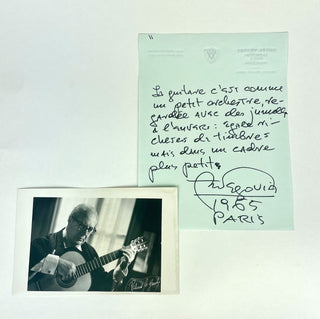 La guitare c'est comme
un petit orchestre, re-
gardée avec des jumelles
à l'envers: égard ri-
chesse de timbres
mais dans un cadre
plus petit.
Segovia
1965
PARIS